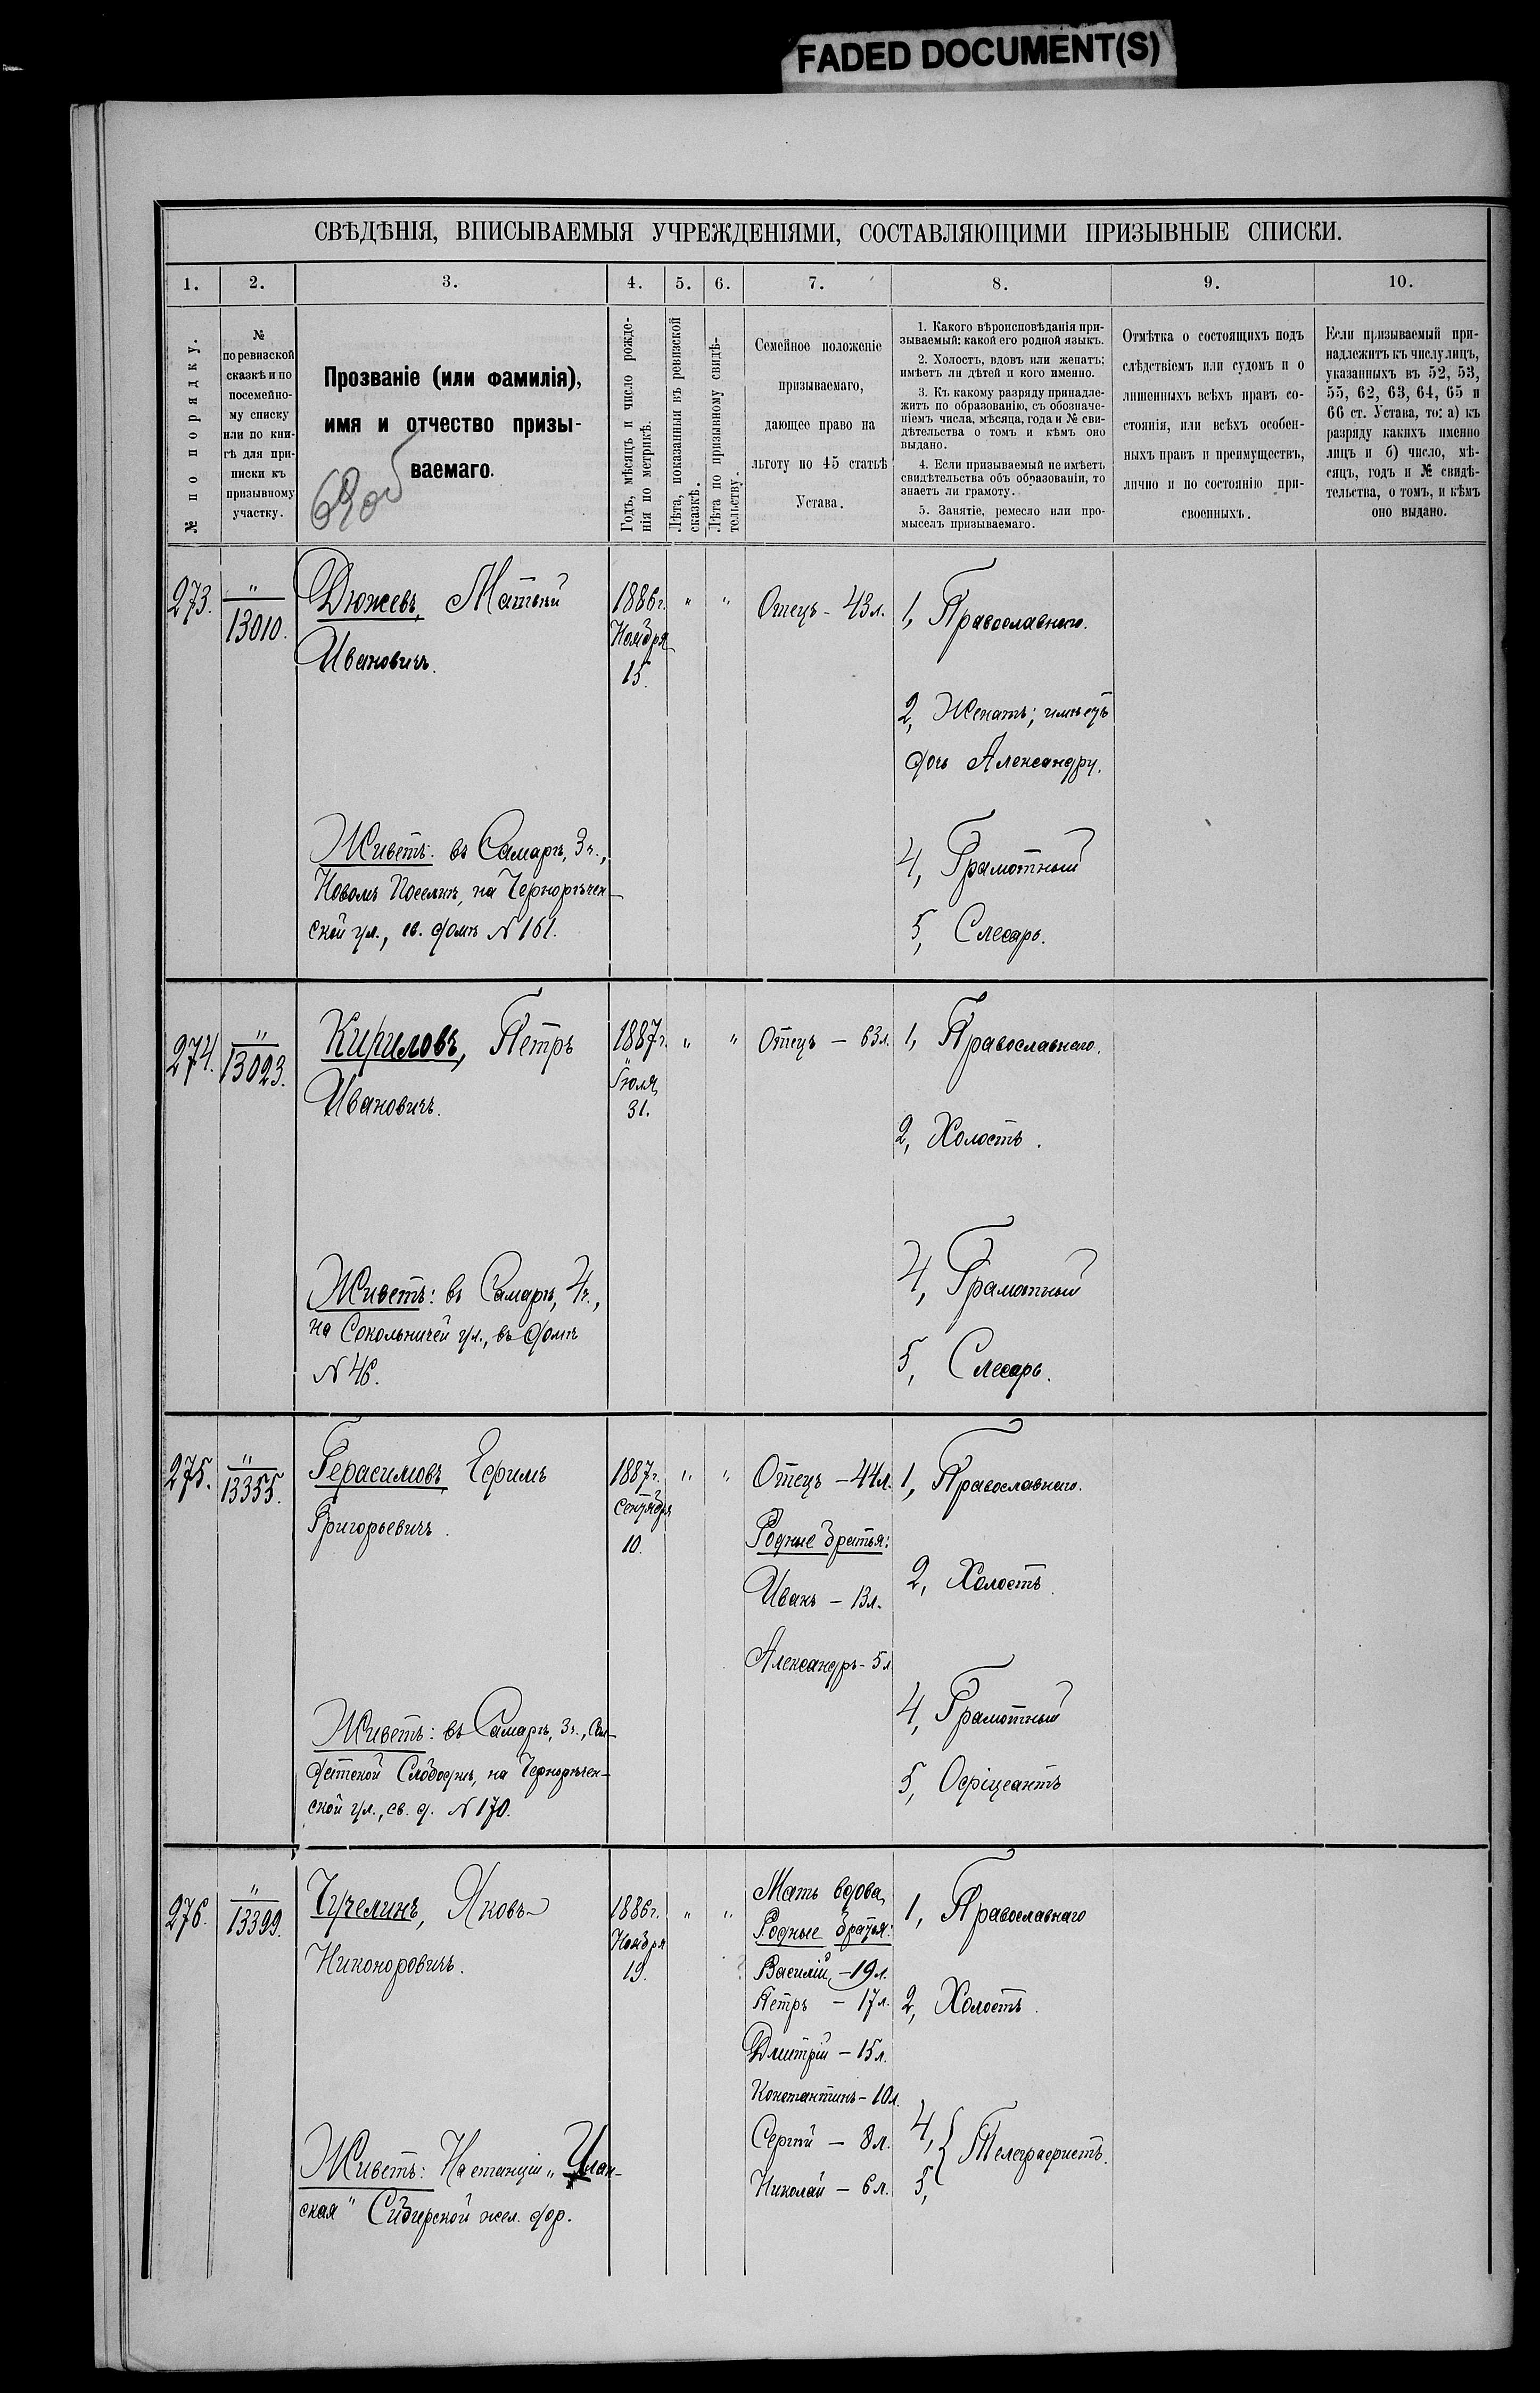 FADED DOCUMENT(S)
СВѢДѢНІЯ, ВПИСЫВАЕМЫЯ УЧРЕЖДЕНІЯМИ, СОСТАВЛЯЮЩИМИ ПРИЗЫВНЫЕ СПИСКИ.
1. 2. 3. 4. 5. 6. 7. 8. 9. 10.
№ по порядку.
№
по ревизской
сказкѣ и по
посемейно-
му списку
или по кни-
гѣ для при-
писки къ
призывному
участку.
Прозваніе (или фамилія),
имя и отчество призы-
ваемаго.
Годъ, мѣсяцъ и число рожде-
нія по метрикѣ.
Лѣта, показанныя въ ревизской
сказкѣ.
Лѣта по призывному свидѣ-
тельству.
Семейное положеніе
призываемаго,
дающее право на
льготу по 45 статьѣ
Устава.
1. Какого вѣроисповѣданія при-
зываемый; какой его родной языкъ.
2. Холостъ, вдовъ или женатъ;
имѣетъ ли дѣтей и кого именно.
3. Къ какому разряду принадле-
житъ по образованію, съ обозначе-
ніемъ числа, мѣсяца, года и № сви-
дѣтельства о томъ и кѣмъ оно
выдано.
4. Если призываемый не имѣетъ
свидѣтельства объ образованіи, то
знаетъ ли грамоту.
5. Занятіе, ремесло или про-
мыселъ призываемаго.
Отмѣтка о состоящихъ подъ
слѣдствіемъ или судомъ и о
лишенныхъ всѣхъ правъ со-
стоянія, или всѣхъ особен-
ныхъ правъ и преимуществъ,
лично и по состоянію при-
своенныхъ.
Если призываемый при-
надлежитъ къ числу лицъ,
указанныхъ въ 52, 53,
55, 62, 63, 64, 65 и
66 ст. Устава, то: а) къ
разряду какихъ именно
лицъ и б) число, мѣ-
сяцъ, годъ и № свидѣ-
тельства, о томъ, и кѣмъ
оно выдано.
273.
"
13010.
Дюжевъ, Матвѣй
Ивановичъ.
Живетъ: въ Самарѣ, 3 ч.,
Новомъ Поселкѣ, на Чернорѣчен-
ской ул., св. домѣ N 161.
1886 г.
Ноября
15.
" "
Отецъ - 43 л.
1, Православнаго.
2, Женатъ; имѣетъ
дочь Александру.
4, Грамотный
5, Слесарь.
274.
"
13023.
Кириловъ, Петръ
Ивановичъ.
Живетъ: въ Самарѣ, 4 ч.,
на Сокольничей ул., въ домѣ
N 46.
1887 г.
Іюля
31.
" "
Отецъ - 63 л.
1, Православнаго.
2, Холостъ.
4, Грамотный
5, Слесарь.
275.
"
13355.
Герасимовъ, Ефимъ
Григорьевичъ.
Живетъ: въ Самарѣ, 3 ч., Сол-
датской Слободкѣ, на Чернорѣчен-
ской ул., св. д. N 170.
1887 г.
Сентября
10.
" "
Отецъ - 44 л.
Родные братья:
Иванъ - 13 л.
Александръ - 5 л.
1, Православнаго.
2, Холостъ.
4, Грамотный
5, Офіцеантъ
276.
"
13399.
Чучелинъ, Яковъ
Никоноровичъ.
Живетъ: На станціи
ская" Сибирской жел. дор.
1886 г.
Ноября
19.
" "
Мать вдова,
Родные братья:
Василій - 19 л.
Петръ - 17 л.
Дмитрій - 15 л.
Константинъ - 10 л.
Сергѣй - 8 л.
Николай - 6 л.
1, Православнаго
2, Холостъ.
4,
5, } Телеграфистъ.